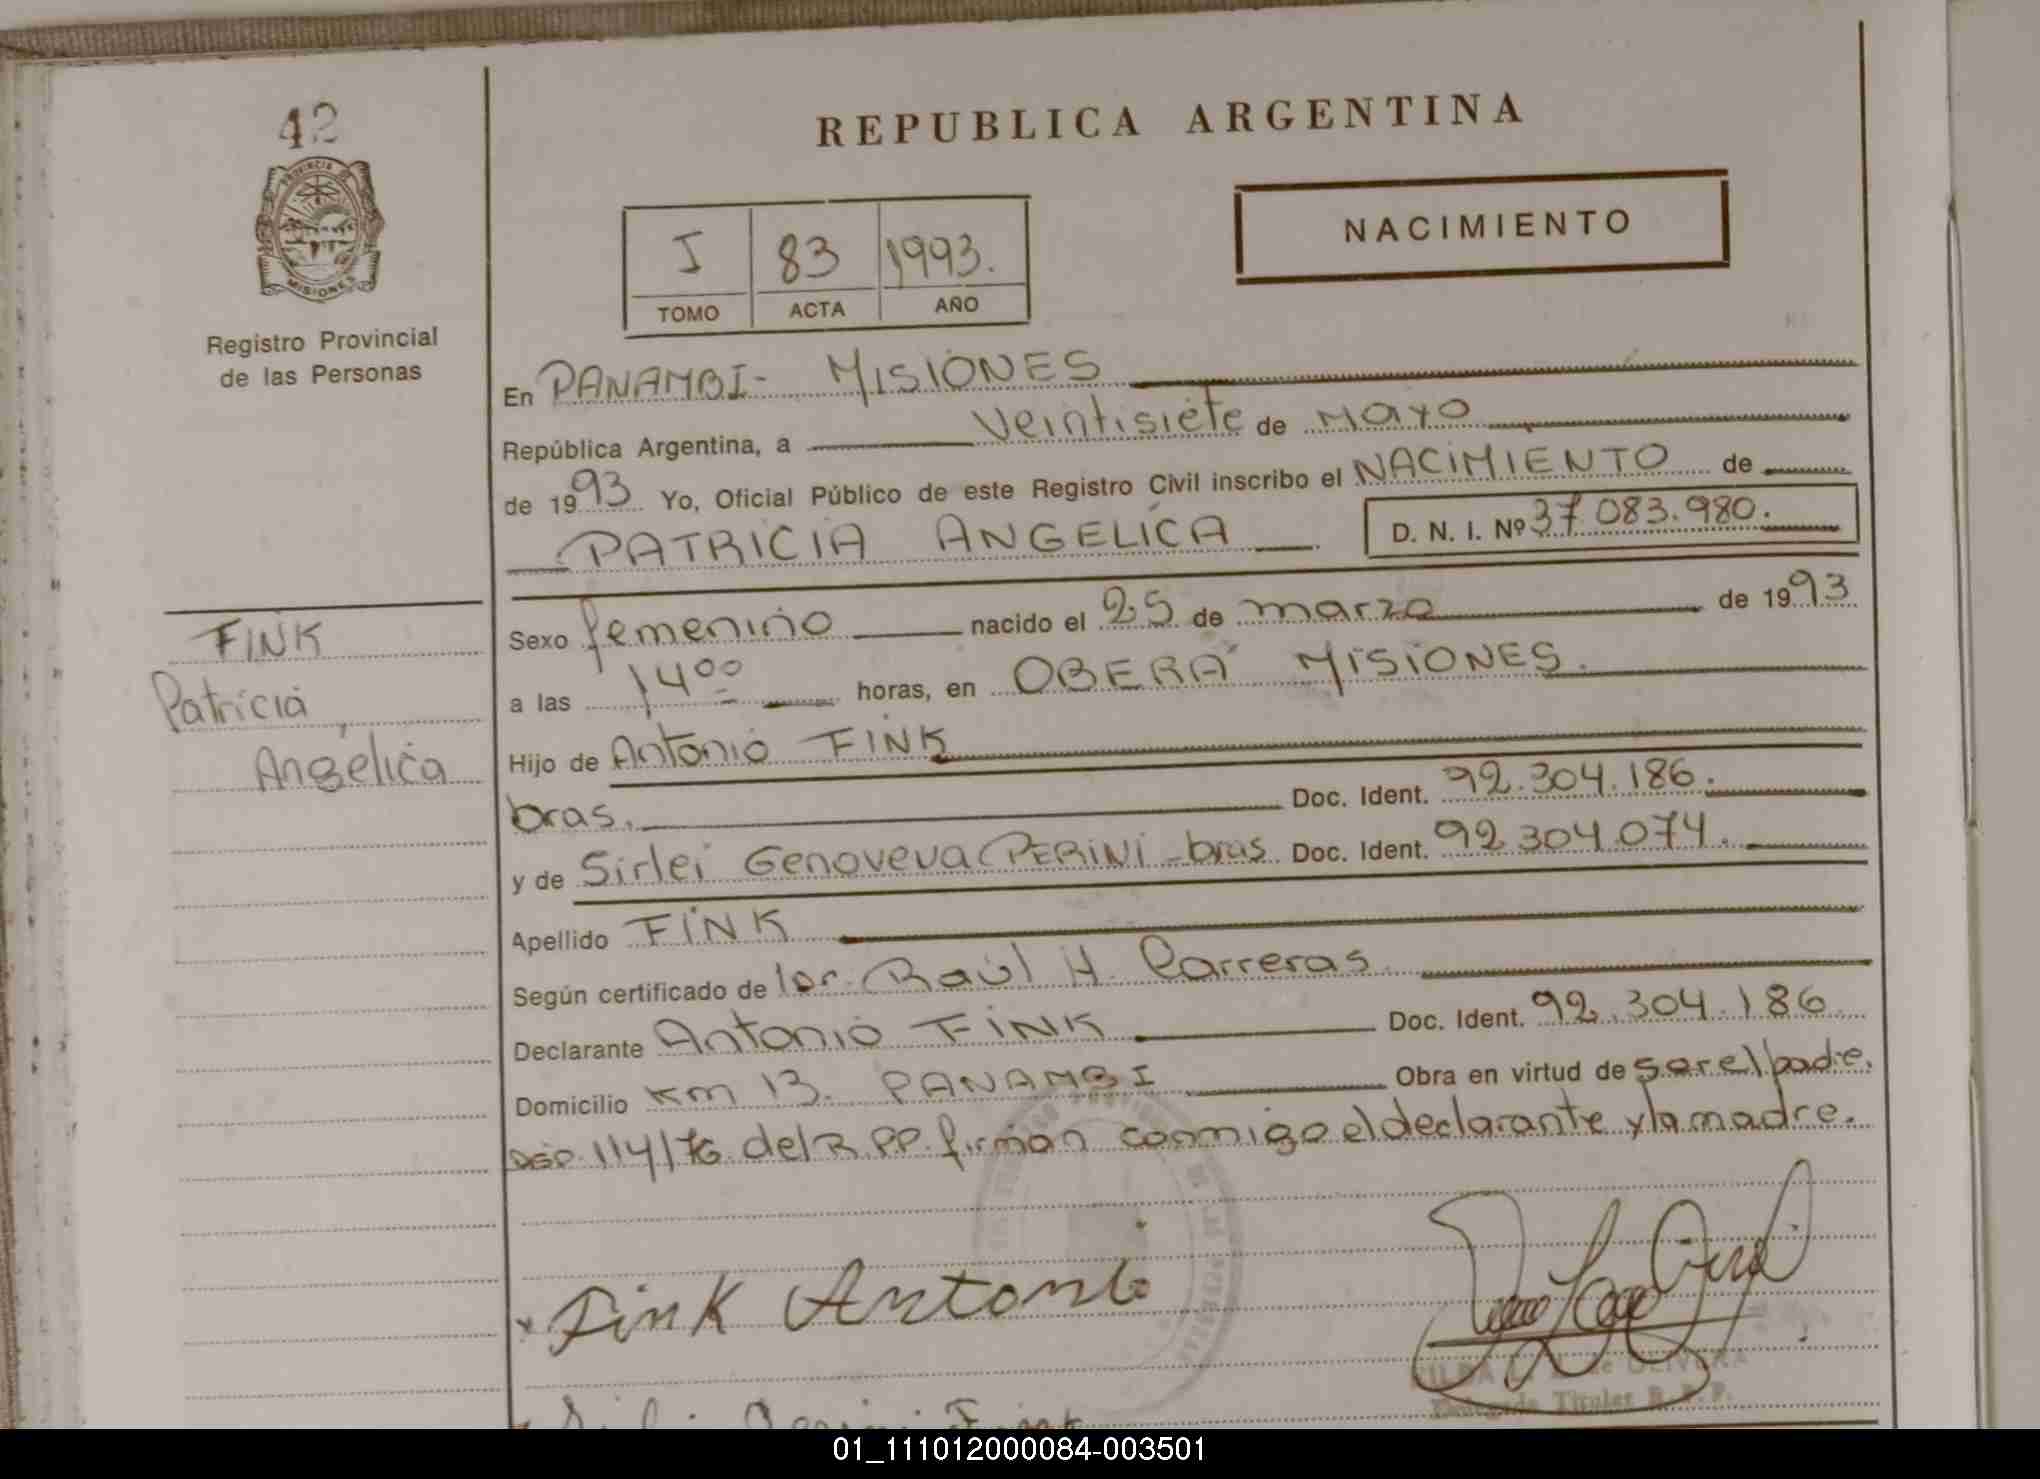 42
PROVINCIA DE
MISIONES
Registro Provincial
de las Personas
REPUBLICA ARGENTINA
NACIMIENTO
I 83 1993.
TOMO ACTA AÑO
En PANAMBI - MISIONES
República Argentina, a Veintisiete de Mayo
de 1993 Yo, Oficial Público de este Registro Civil inscribo el NACIMIENTO de
PATRICIA ANGELICA D. N. I. Nº 37.083.980.
Sexo femenino nacido el 25 de marzo de 1993
a las 14⁰⁰ horas, en OBERA MISIONES.
Hijo de Antonio FINK
bras. Doc. Ident. 92.304.186.
y de Sirlei Genoveva PERINI - bras. Doc. Ident. 92.304.074.
Apellido FINK
Según certificado de Dr. Raúl H. Carreras
Declarante Antonio FINK Doc. Ident. 92.304.186
Domicilio Km 13. PANAMBI Obra en virtud de ser el padre.
DSP. 114/76 del R.P.P. firman conmigo el declarante y la madre.
FINK
Patricia
Angélica
Fink Antonio
de OLIVERA
Delegada Titular R. P. P.
01_111012000084-003501